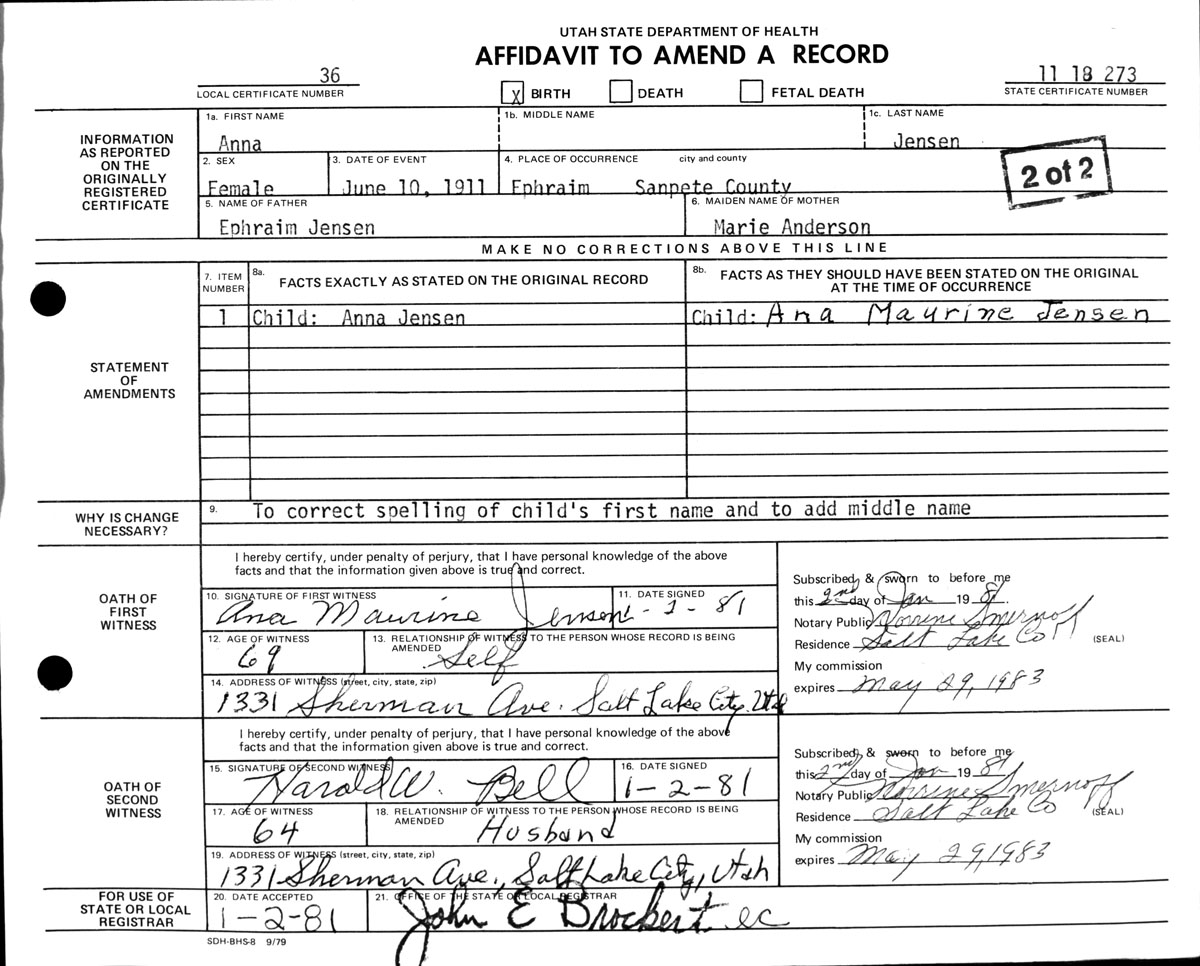 UTAH STATE DEPARTMENT OF HEALTH
AFFIDAVIT TO AMEND A RECORD
36
LOCAL CERTIFICATE NUMBER
X BIRTH DEATH FETAL DEATH
11 18 273
STATE CERTIFICATE NUMBER
INFORMATION AS REPORTED ON THE ORIGINALLY REGISTERED CERTIFICATE
1a. FIRST NAME 1b. MIDDLE NAME 1c. LAST NAME
Anna Jensen
2. SEX 3. DATE OF EVENT 4. PLACE OF OCCURRENCE city and county
Female June 10, 1911 Ephraim Sanpete County
2 of 2
5. NAME OF FATHER 6. MAIDEN NAME OF MOTHER
Ephraim Jensen Marie Anderson
MAKE NO CORRECTIONS ABOVE THIS LINE
STATEMENT OF AMENDMENTS
7. ITEM NUMBER
8a. FACTS EXACTLY AS STATED ON THE ORIGINAL RECORD
8b. FACTS AS THEY SHOULD HAVE BEEN STATED ON THE ORIGINAL
AT THE TIME OF OCCURRENCE
1 Child: Anna Jensen Child: Ana Maurine Jensen
WHY IS CHANGE NECESSARY?
9. To correct spelling of child's first name and to add middle name
OATH OF FIRST WITNESS
I hereby certify, under penalty of perjury, that I have personal knowledge of the above
facts and that the information given above is true and correct.
10. SIGNATURE OF FIRST WITNESS 11. DATE SIGNED
Ana Maurine Jensen 1-2-81
12. AGE OF WITNESS 13. RELATIONSHIP OF WITNESS TO THE PERSON WHOSE RECORD IS BEING AMENDED
69 Self
14. ADDRESS OF WITNESS (street, city, state, zip)
1331 Sherman Ave. Salt Lake City. Utah
Subscribed & sworn to before me
this 2nd day of Jan 1981
Notary Public Norrine Smernoff
Residence Salt Lake Co (SEAL)
My commission
expires May 29, 1983
OATH OF SECOND WITNESS
I hereby certify, under penalty of perjury, that I have personal knowledge of the above
facts and that the information given above is true and correct.
15. SIGNATURE OF SECOND WITNESS 16. DATE SIGNED
Harold W. Bell 1-2-81
17. AGE OF WITNESS 18. RELATIONSHIP OF WITNESS TO THE PERSON WHOSE RECORD IS BEING AMENDED
64 Husband
19. ADDRESS OF WITNESS (street, city, state, zip)
1331 Sherman Ave, Salt Lake City, Utah
Subscribed & sworn to before me
this 2nd day of Jan 1981
Notary Public Norrine Smernoff
Residence Salt Lake Co (SEAL)
My commission
expires May 29, 1983
FOR USE OF STATE OR LOCAL REGISTRAR
20. DATE ACCEPTED 21. OFFICE OF THE STATE OR LOCAL REGISTRAR
1-2-81 John E Brockert ec
SDH-BHS-8 9/79